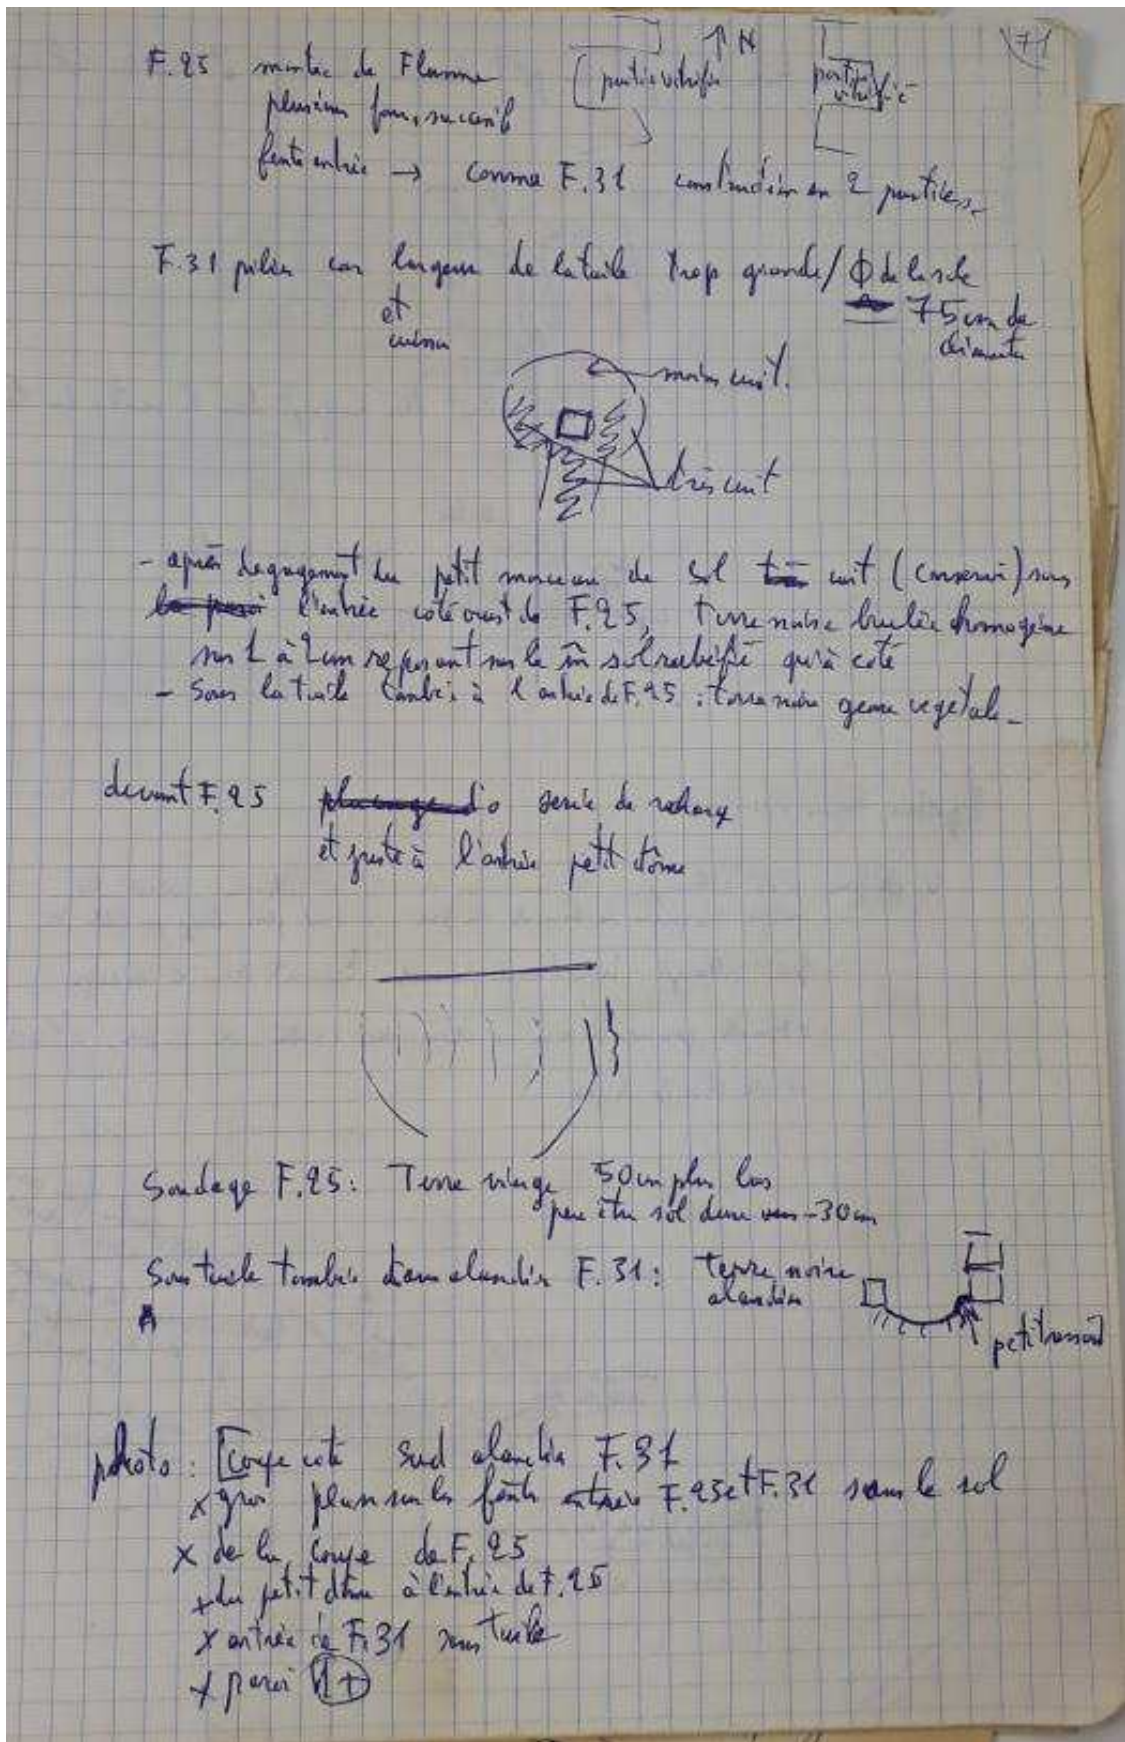 71
↑ N
F.25 montée de Flamme partie vitrifiée partie vitrifiée
plusieurs fours, successif
fente entrée → comme F.31 construction en 2 parties.
F.31 pilier car largeur de la tuile trop grande / Φ de la sole
et 75 cm de
cuisson diamètre
moins cuit.
très cuit
- après dégagement du petit morceau de sol cuit (conservé) sous
l'entrée coté ouest de F.25, terre noire brulée homogène
sur 1 à 2 cm reposant sur le m̂ sol rubéfié qu'à coté
- Sous la tuile tombée à l'entrée de F.25 : terre noire genre vegetale -
devant F.25 serie de
et juste à l'entrée petit dôme
Sondage F.25 : Terre vierge 50 cm plus bas
peu être sol dure vers -30 cm
Sous tuile tombée dans alandier F.31 : terre noire
alandier
petit
photo : [Coupe coté sud alandier F.31
x gros plan sur les fente entrée F.25 et F.31 sous le sol
x de la coupe de F.25
x du petit dôme à l'entrée de F.25
x entrée de F.31 sous tuile
x paroi